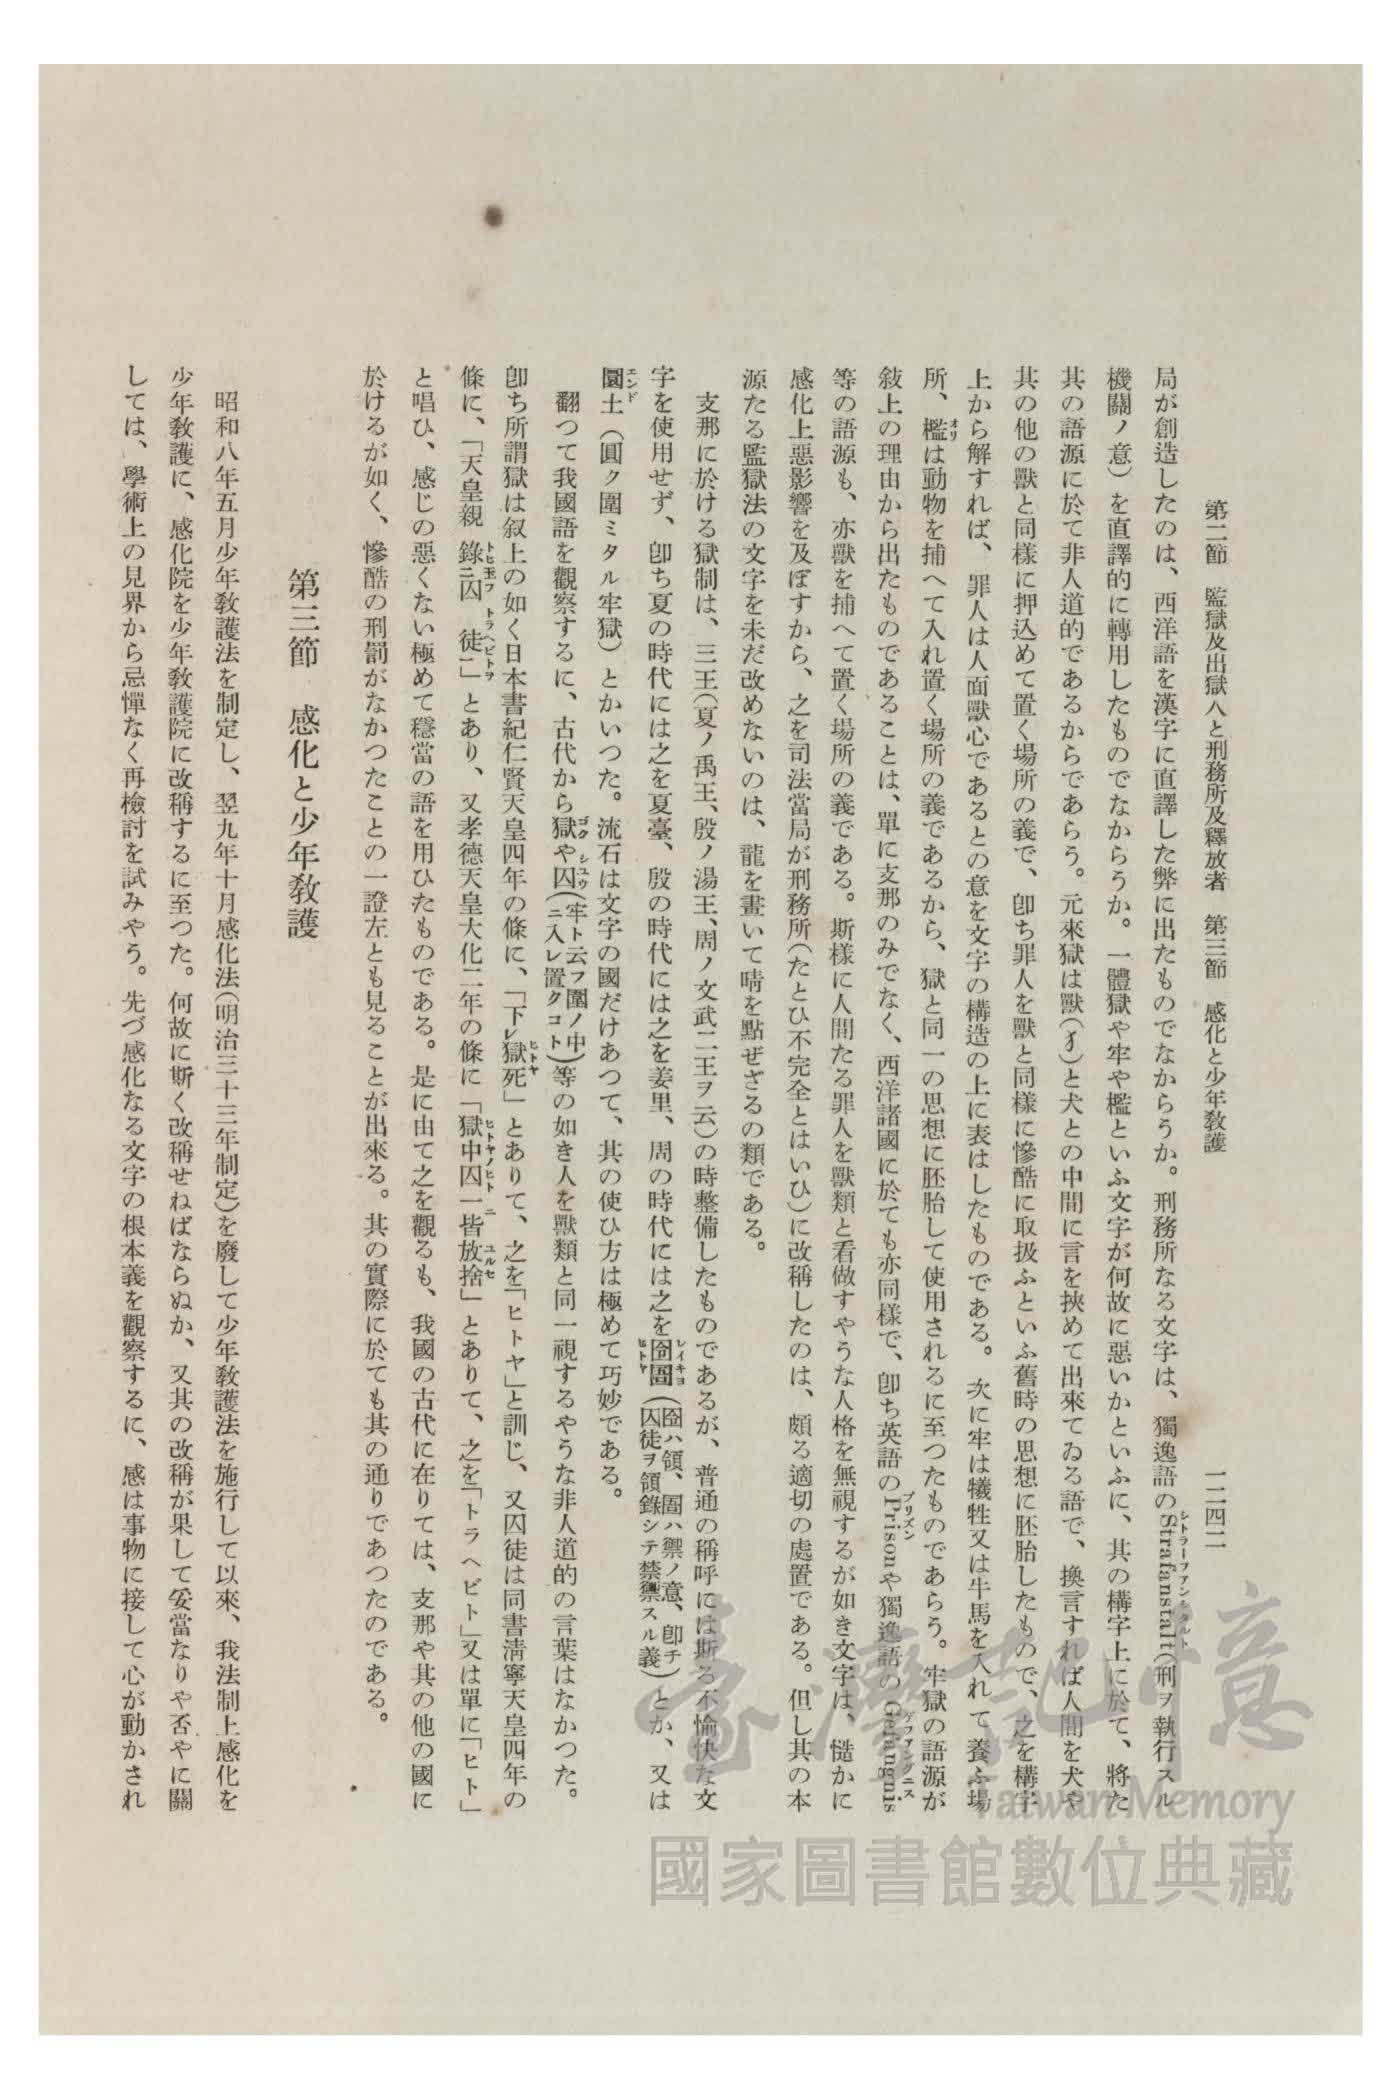 第二節　監獄及出獄人と刑務所及釋放者　第三節　感化と少年敎護　一二四二
局が創造したのは、西洋語を漢字に直譯した弊に出たものでなからうか。刑務所なる文字は、獨逸語のStrafanstalt(刑ヲ執行スル
機關ノ意)を直譯的に轉用したものでなからうか。一體獄や牢や檻といふ文字が何故に惡いかといふに、其の構字上に於て、將た
其の語源に於て非人道的であるからであらう。元來獄は獸(犭)と犬との中間に言を挾めて出來てゐる語で、換言すれば人間を犬や
其の他の獸と同樣に押込めて置く場所の義で、卽ち罪人を獸と同樣に慘酷に取扱ふといふ舊時の思想に胚胎したもので、之を構字
上から解すれば、罪人は人面獸心であるとの意を文字の構造の上に表はしたものである。次に牢は犧牲又は牛馬を入れて養ふ場
所、檻は動物を捕へて入れ置く場所の義であるから、獄と同一の思想に胚胎して使用されるに至つたものであらう。牢獄の語源が
敍上の理由から出たものであることは、單に支那のみでなく、西洋諸國に於ても亦同樣で、卽ち英語のPrisonや獨逸語のGefängnis
等の語源も、亦獸を捕へて置く場所の義である。斯樣に人間たる罪人を獸類と看做すやうな人格を無視するが如き文字は、慥かに
感化上惡影響を及ぼすから、之を司法當局が刑務所(たとひ不完全とはいひ)に改稱したのは、頗る適切の處置である。但し其の本
源たる監獄法の文字を未だ改めないのは、龍を畫いて晴を點ぜざるの類である。
支那に於ける獄制は、三王(夏ノ禹王、殷ノ湯王、周ノ文武二王ヲ云)の時整備したものであるが、普通の稱呼には斯る不愉快な文
字を使用せず、卽ち夏の時代には之を夏臺、殷の時代には之を姜里、周の時代には之を囹圄(囹ハ領、圄ハ禦ノ意、卽チ囚徒ヲ領錄シテ禁禦スル義)とか、又は
圜土(圓ク圍ミタル牢獄)とかいつた。流石は文字の國だけあつて、其の使ひ方は極めて巧妙である。
翻つて我國語を觀察するに、古代から獄や囚(牢ト云フ圍ノ中ニ入レ置クコト)等の如き人を獸類と同一視するやうな非人道的の言葉はなかつた。
卽ち所謂獄は叙上の如く日本書紀仁賢天皇四年の條に、「下レ獄死」とありて、之を「ヒトヤ」と訓じ、又囚徒は同書淸寧天皇四年の
條に、「天皇親錄ニ囚徒一」とあり、又孝德天皇大化二年の條に「獄中囚一皆放捨」とありて、之を「トラヘビト」又は單に「ヒト」
と唱ひ、感じの惡くない極めて穩當の語を用ひたものである。是に由て之を觀るも、我國の古代に在りては、支那や其の他の國に
於けるが如く、慘酷の刑罰がなかつたことの一證左とも見ることが出來る。其の實際に於ても其の通りであつたのである。
第三節　感化と少年敎護
昭和八年五月少年敎護法を制定し、翌九年十月感化法(明治三十三年制定)を廢して少年敎護法を施行して以來、我法制上感化を
少年敎護に、感化院を少年敎護院に改稱するに至つた。何故に斯く改稱せねばならぬか、又其の改稱が果して妥當なりや否やに關
しては、學術上の見界から忌憚なく再檢討を試みやう。先づ感化なる文字の根本義を觀察するに、感は事物に接して心が動かされ
臺灣記憶
Taiwan Memory
國家圖書館數位典藏